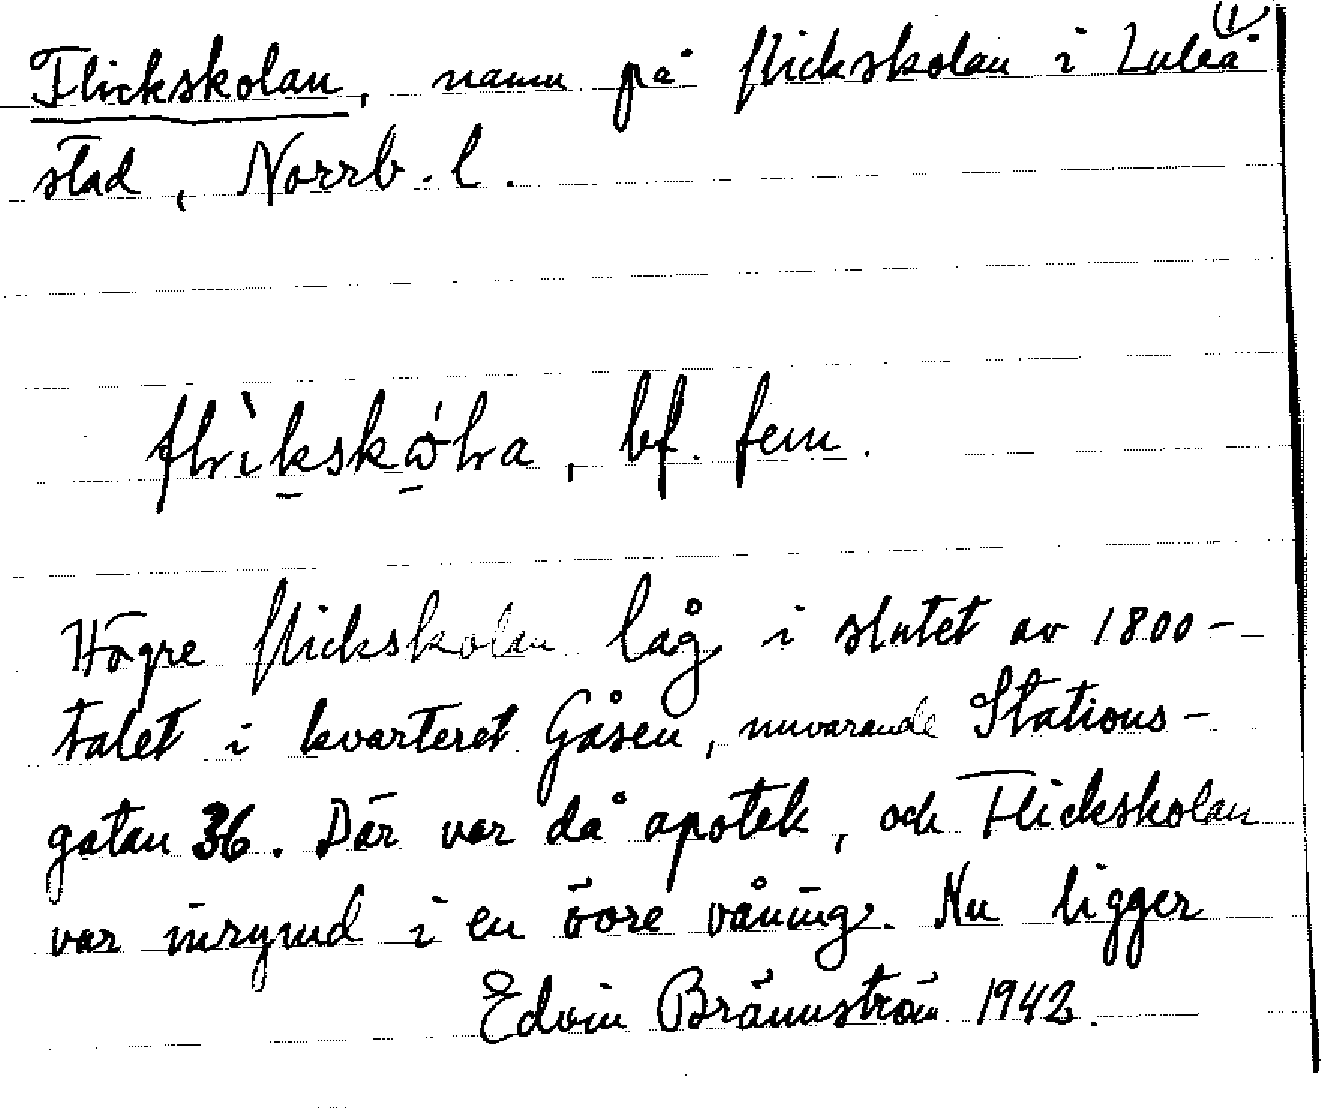 1)
Flickskolan, namn på flickskolan i Luleå
stad, Norrb. l.
bf. fem.
Högre flickskolan låg i slutet av 1800-
talet i kvarteret Gåsen, nuvarande Stations-
gatan 36. Där var då apotek, och Flickskolan
var inrymd i en övre våning. Nu ligger
Edvin Brännström 1942.